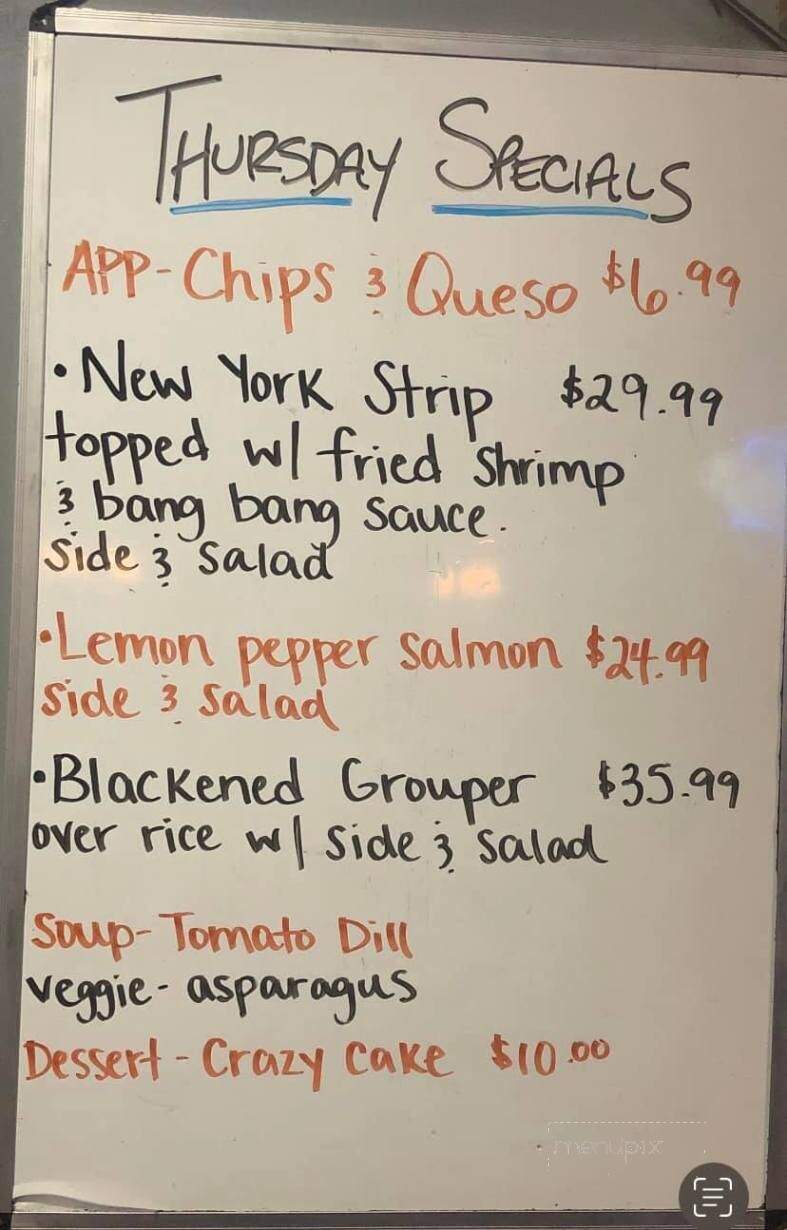 THURSDAY SPECIALS
APP-Chips & Queso $6.99
• New York Strip $29.99
topped w/ fried shrimp
& bang bang sauce.
side & salad
• Lemon pepper salmon $24.99
side & salad
• Blackened Grouper $35.99
over rice w/ side & salad
Soup- Tomato Dill
veggie- asparagus
Dessert - Crazy Cake $10.00
menupix